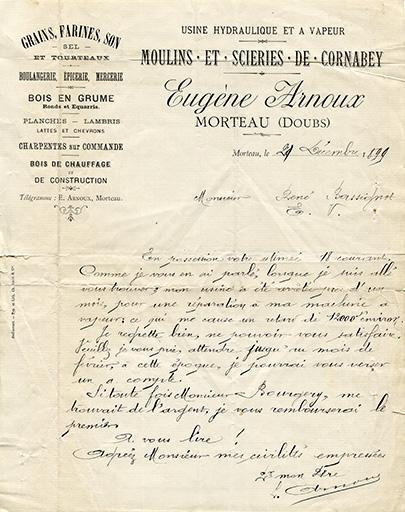 GRAINS, FARINES, SON
SEL
ET TOURTEAUX
BOULANGERIE, ÉPICERIE, MERCERIE
BOIS EN GRUME
Ronds et Equarris.
PLANCHES - LAMBRIS
LATTES ET CHEVRONS
CHARPENTES sur COMMANDE
BOIS DE CHAUFFAGE
ET
DE CONSTRUCTION
Télégramme : E. ARNOUX, Morteau.
USINE HYDRAULIQUE ET A VAPEUR
MOULINS · ET · SCIERIES · DE · CORNABEY
Eugène Arnoux
MORTEAU (DOUBS)
Morteau, le 29 Décembre 1899
Monsieur René Bassignot
E. V.
En possession votre estimée 11 courant.
Comme je vous en ai parlé, lorsque je suis allé
vous trouver ; mon usine a été arrêtée près d'un
mois, pour une réparation à ma machine à
vapeur, ce qui me cause un retard de 12000 environ.
Je regrette bien, ne pouvoir vous satisfaire.
Veuillez je vous prie, attendre, jusqu'au mois de
février, à cette époque, je pourrai vous verser
un à compte.
Si toute fois Monsieur Bourgery, me
trouvait de l'argent, je vous rembourserai le
premier.
A vous lire !
Agréez Monsieur mes civilités empressées
mon
Arnoux